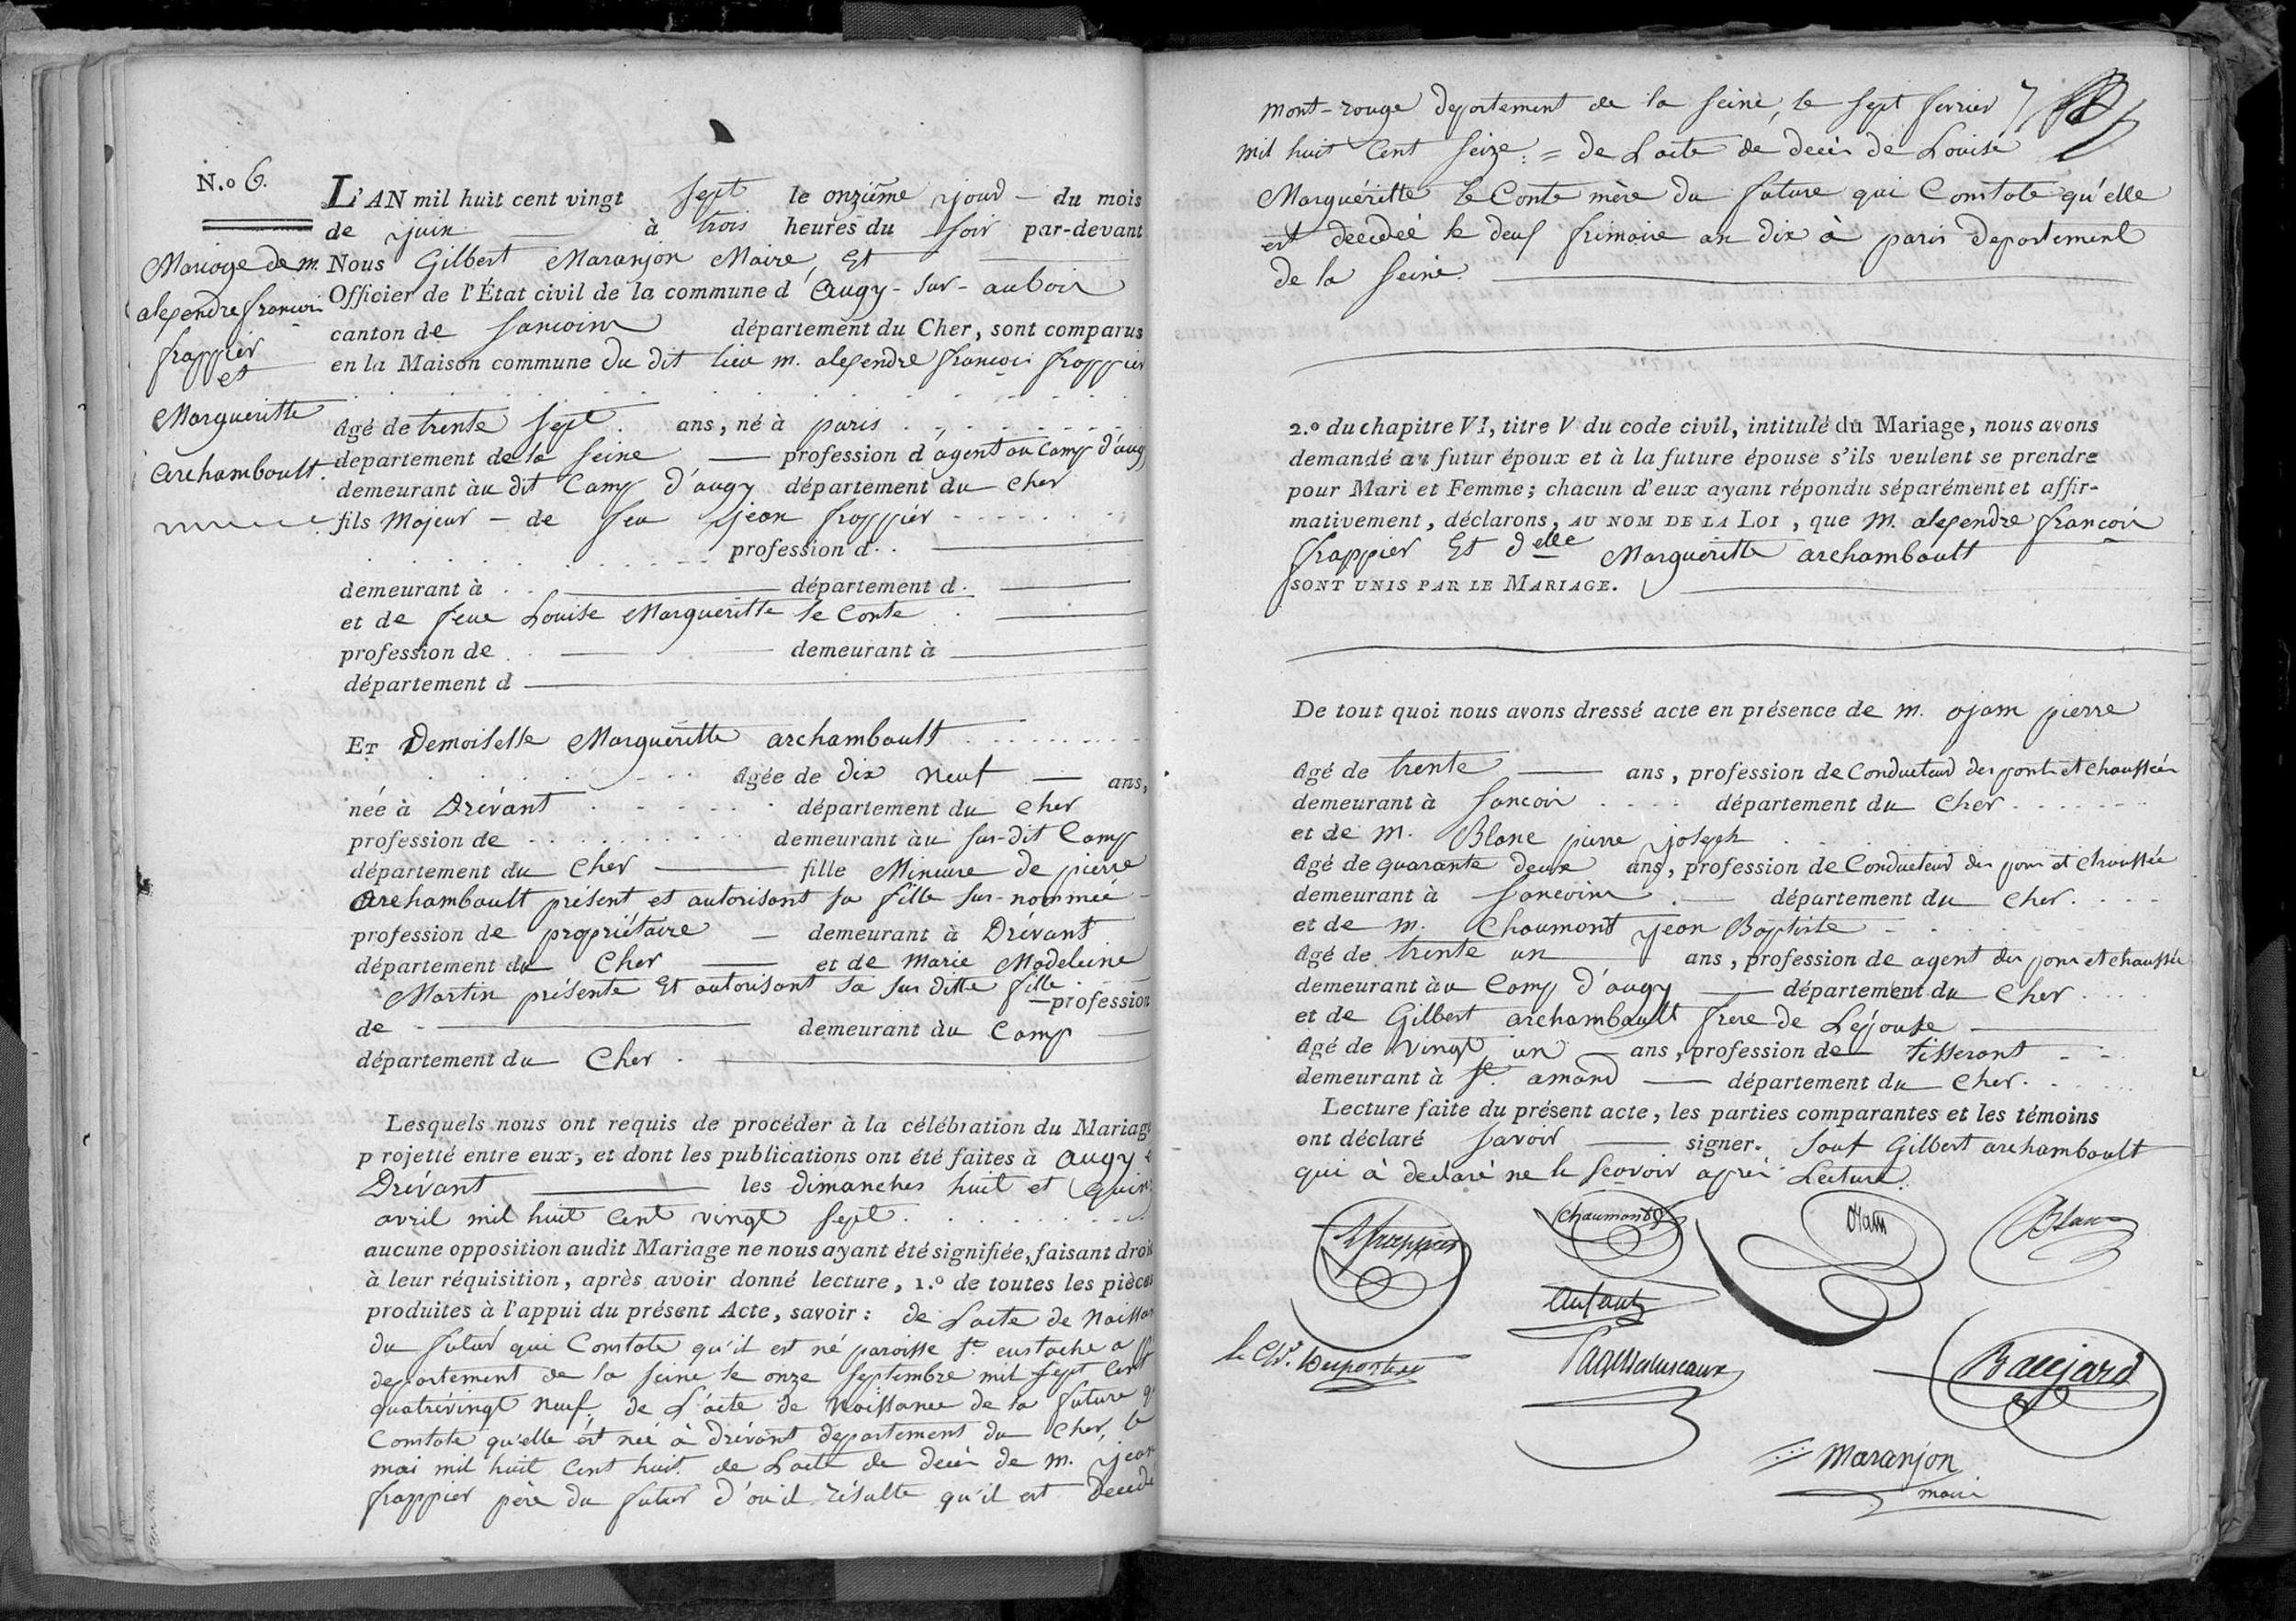 N.o 6.
Mariage de m.
alexendre françois
frappier
et
Margueritte
Archambault.
L'AN mil huit cent vingt sept le onzième jour du mois
de juin à trois heures du soir par-devant
Nous Gilbert Maranjon Maire, Et
Officier de l'État civil de la commune d'Augy-sur-aubois
canton de Sancoins département du Cher, sont comparus
en la Maison commune du dit lieu m. alexendre françois frappier
Agé de trente sept ans, né à paris
département de la Seine profession d'agent au Camp d'augy
demeurant àu dit Camp d'augy département du Cher
fils Majeur de feu jean frappier
profession d
demeurant à département d
et de feue Louise Margueritte le Conte
profession de demeurant à
département d
Et Demoiselle Margueritte archambault
Agée de dix neuf ans,
née à Drévant département du Cher
profession de demeurant àu sus-dit Camp
département du Cher fille Mineure de pierre
Archambault présent et autorisant sa fille sus-nommée
profession de propriétaire demeurant à Drévant
département du Cher et de Marie Madeleine
Martin présente Et autorisant sa sus ditte fille profession
de demeurant àu Camp
département du Cher.
Lesquels nous ont requis de procéder à la célébration du Mariage
projetté entre eux, et dont les publications ont été faites à Augy
Drévant les dimanches huit et
avril mil huit Cent vingt sept.
aucune opposition audit Mariage ne nous ayant été signifiée, faisant droit
à leur réquisition, après avoir donné lecture, 1.o de toutes les pièces
produites à l'appui du présent Acte, savoir: de L'acte de
du futur qui Constate qu'il est né paroisse St. eustache a
departement de la Seine le onze Septembre mil sept Cent
quatrévingt neuf, de L'acte de Naissance de la future
Constate qu'elle est née à drévant departement du Cher, le
mai mil huit Cent huit. de L'acte de décès de m. jean
frappier père du futur d'où il résulte qu'il est
mont-rouge departement de la Seine, le sept fevrier
mil huit Cent Seize: = de L'acte de décès de Louise
Margueritte le Conte mère du future qui Constate qu'elle
est décédée le deux frimaire an dix à paris departement
de la Seine.
2.o du chapitre VI, titre V du code civil, intitulé du Mariage, nous avons
demandé au futur époux et à la future épouse s'ils veulent se prendre
pour Mari et Femme; chacun d'eux ayant répondu séparément et affir-
mativement, déclarons, AU NOM DE LA LOI, que M. alexendre françois
frappier Et delle Margueritte archambault
SONT UNIS PAR LE MARIAGE.
De tout quoi nous avons dressé acte en présence de m. ojam pierre
Agé de trente ans, profession de Conducteur des ponts et chaussées
demeurant à Sancoin département du Cher
et de m. Blanc pierre joseph
Agé de quarante deux ans, profession de Conducteur des pons et chaussée
demeurant à Sancoins département du Cher.
et de m. Chaumont jean Baptiste
Agé de trente un ans, profession de agent des pons et chaussée
demeurant àu Camp d'augy département du Cher
et de Gilbert archambault frere de Lépouse
Agé de vingt un ans, profession de tisserant
demeurant à St. amand département du Cher.
Lecture faite du présent acte, les parties comparantes et les témoins
ont déclaré savoir signer. Sauf Gilbert archambault
qui à declaré ne le sçavoir après Lecture.
Afrappier Chaumont Ojam Blanc
Baujard
Maranjon
maire